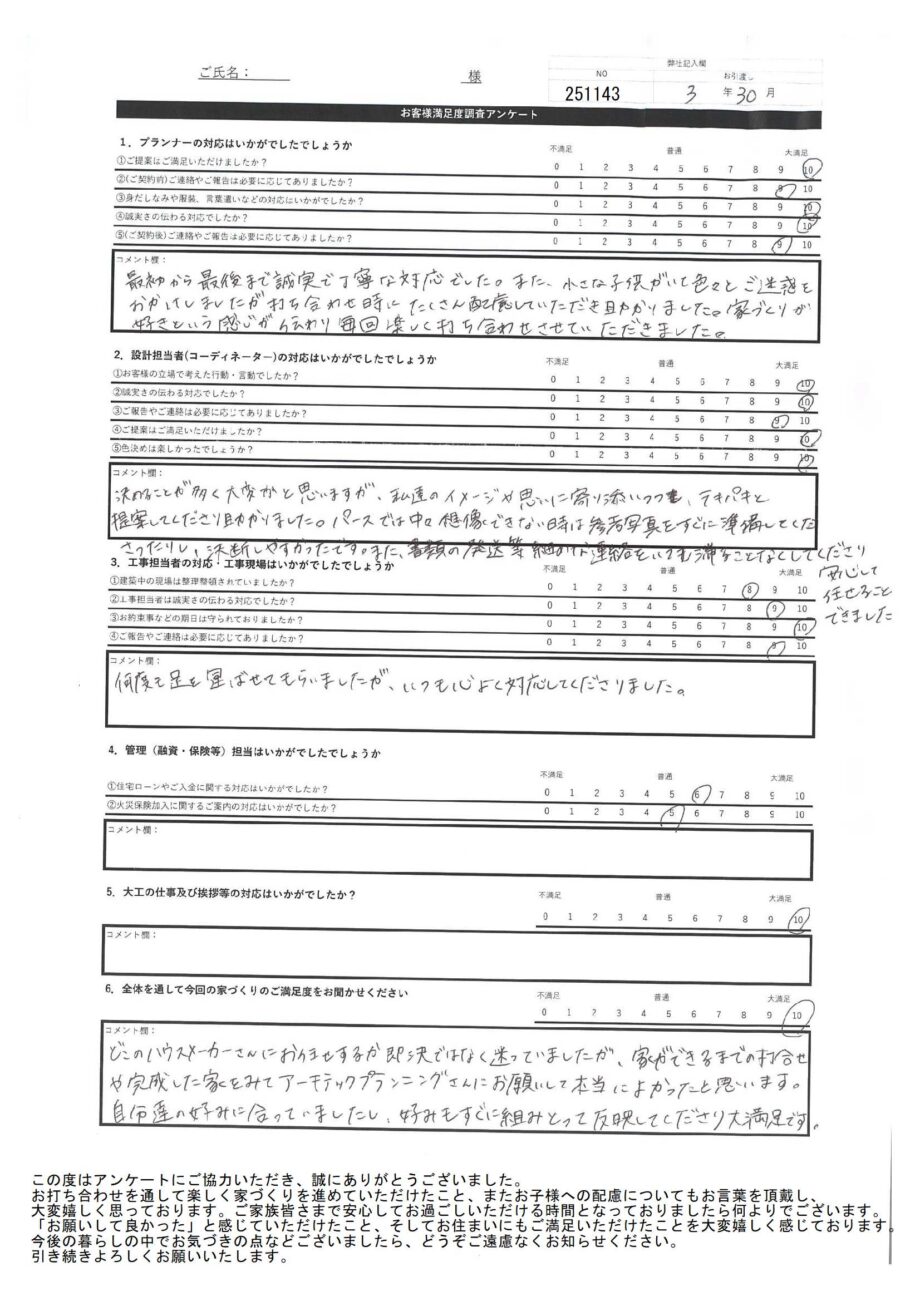 ご氏名： 様
弊社記入欄
NO お引渡し
251143 3 年 30 月
お客様満足度調査アンケート
1．プランナーの対応はいかがでしたでしょうか 不満足 普通 大満足
①ご提案はご満足いただけましたか？ 0 1 2 3 4 5 6 7 8 9 10
②(ご契約前)ご連絡やご報告は必要に応じてありましたか？ 0 1 2 3 4 5 6 7 8 9 10
③身だしなみや服装、言葉遣いなどの対応はいかがでしたか？ 0 1 2 3 4 5 6 7 8 9 10
④誠実さの伝わる対応でしたか？ 0 1 2 3 4 5 6 7 8 9 10
⑤(ご契約後)ご連絡やご報告は必要に応じてありましたか？ 0 1 2 3 4 5 6 7 8 9 10
コメント欄：
最初から最後まで誠実で丁寧な対応でした。また、小さな子供がいて色々とご迷惑を
おかけしましたが打ち合わせ時にたくさん配慮していただき助かりました。家づくりが
好きという感じが伝わり毎回楽しく打ち合わせさせていただきました。
2．設計担当者(コーディネーター)の対応はいかがでしたでしょうか 不満足 普通 大満足
①お客様の立場で考えた行動・言動でしたか？ 0 1 2 3 4 5 6 7 8 9 10
②誠実さの伝わる対応でしたか？ 0 1 2 3 4 5 6 7 8 9 10
③ご報告やご連絡は必要に応じてありましたか？ 0 1 2 3 4 5 6 7 8 9 10
④ご提案はご満足いただけましたか？ 0 1 2 3 4 5 6 7 8 9 10
⑤色決めは楽しかったでしょうか？ 0 1 2 3 4 5 6 7 8 9 10
コメント欄：
決めることが多く大変かと思いますが、私達のイメージや思いに寄り添いつつも、テキパキと
提案してくださり助かりました。パースでは中々想像できない時は参考写真をすぐに準備してくだ
さったりし、決断しやすかったです。また、書類の発送等細かな連絡をいつも滞ることなくしてくださり
安心して
任せること
できました
3．工事担当者の対応・工事現場はいかがでしたでしょうか 不満足 普通 大満足
①建築中の現場は整理整頓されていましたか？ 0 1 2 3 4 5 6 7 8 9 10
②工事担当者は誠実さの伝わる対応でしたか？ 0 1 2 3 4 5 6 7 8 9 10
③お約束事などの期日は守られておりましたか？ 0 1 2 3 4 5 6 7 8 9 10
④ご報告やご連絡は必要に応じてありましたか？ 0 1 2 3 4 5 6 7 8 9 10
コメント欄：
何度も足を運ばせてもらいましたが、いつも心よく対応してくださりました。
4．管理（融資・保険等）担当はいかがでしたでしょうか
不満足 普通 大満足
①住宅ローンやご入金に関する対応はいかがでしたか？ 0 1 2 3 4 5 6 7 8 9 10
②火災保険加入に関するご案内の対応はいかがでしたか？ 0 1 2 3 4 5 6 7 8 9 10
コメント欄：
5．大工の仕事及び挨拶等の対応はいかがでしたか？ 不満足 普通 大満足
0 1 2 3 4 5 6 7 8 9 10
コメント欄：
6．全体を通して今回の家づくりのご満足度をお聞かせください 不満足 普通 大満足
0 1 2 3 4 5 6 7 8 9 10
コメント欄：
どこのハウスメーカーさんにおまかせするか即決ではなく迷っていましたが、家ができるまでの打合せ
や完成した家をみてアーキテックプランニングさんにお願いして本当によかったと思います。
自分達の好みに合っていましたし、好みもすぐに組みとって反映してくださり大満足です。
この度はアンケートにご協力いただき、誠にありがとうございました。
お打ち合わせを通して楽しく家づくりを進めていただけたこと、またお子様への配慮についてもお言葉を頂戴し、
大変嬉しく思っております。ご家族皆さまで安心してお過ごしいただける時間となっておりましたら何よりでございます。
「お願いして良かった」と感じていただけたこと、そしてお住まいにもご満足いただけたことを大変嬉しく感じております。
今後の暮らしの中でお気づきの点などございましたら、どうぞご遠慮なくお知らせください。
引き続きよろしくお願いいたします。